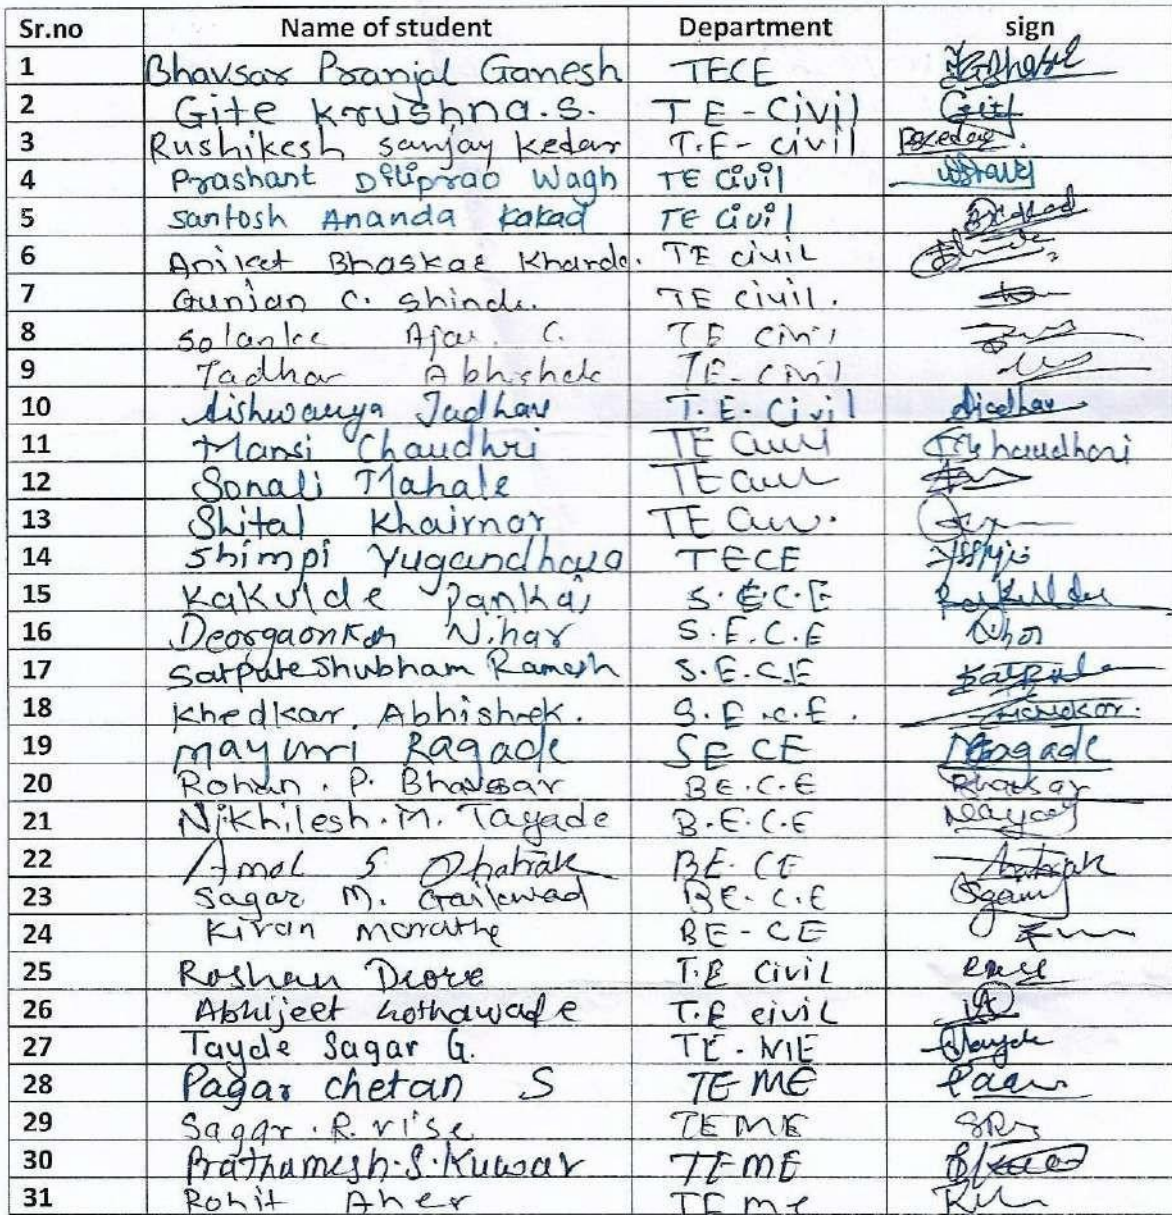 Sr.no Name of student Department sign
1 Bhavsar Pranjal Ganesh TECE
2 Gite Krushna.S. TE-Civil Gite
3 Rushikesh sanjay Kedar T.E-civil RSKedar.
4 Prashant Diliprao Wagh TE Civil
5 Santosh Ananda Kakad TE Civil
6 Aniket Bhaskar Kharde. TE civil
7 Gunjan C. Shinde. TE civil.
8 Solanke Ajay C. TE Civil
9 Jadhav Abhishek TE-Civil
10 Aishwarya Jadhav T.E-Civil AJadhav
11 Mansi Chaudhri TE Civil
12 Sonali Mahale TE Civil
13 Shital Khairnar TE Civil.
14 Shimpi Yugandhara TECE
15 Kakulde Pankaj S.E.C.E
16 Deorgaonkar Nihar S.E.C.E Nihar
17 Satpute Shubham Ramesh S.E.C.E
18 Khedkar. Abhishek. S.E.C.E.
19 Mayuri Ragade SE CE
20 Rohan. P. Bhavsar BE.C.E Bhavsar
21 Nikhilesh.M. Tayade B.E.C.E
22 Amol S Dhatrak BE.CE
23 Sagar M. Gaikwad BE.C.E
24 Kiran Marathe BE-CE
25 Roshan Deore T.E Civil
26 Abhijeet Kothawade T.E civil
27 Tayde Sagar G. TE-ME Tayde
28 Pagar chetan S TE ME
29 Sagar.R.vise TE ME
30 Prathamesh.S.Kuwar TE ME
31 Rohit Aher TE me